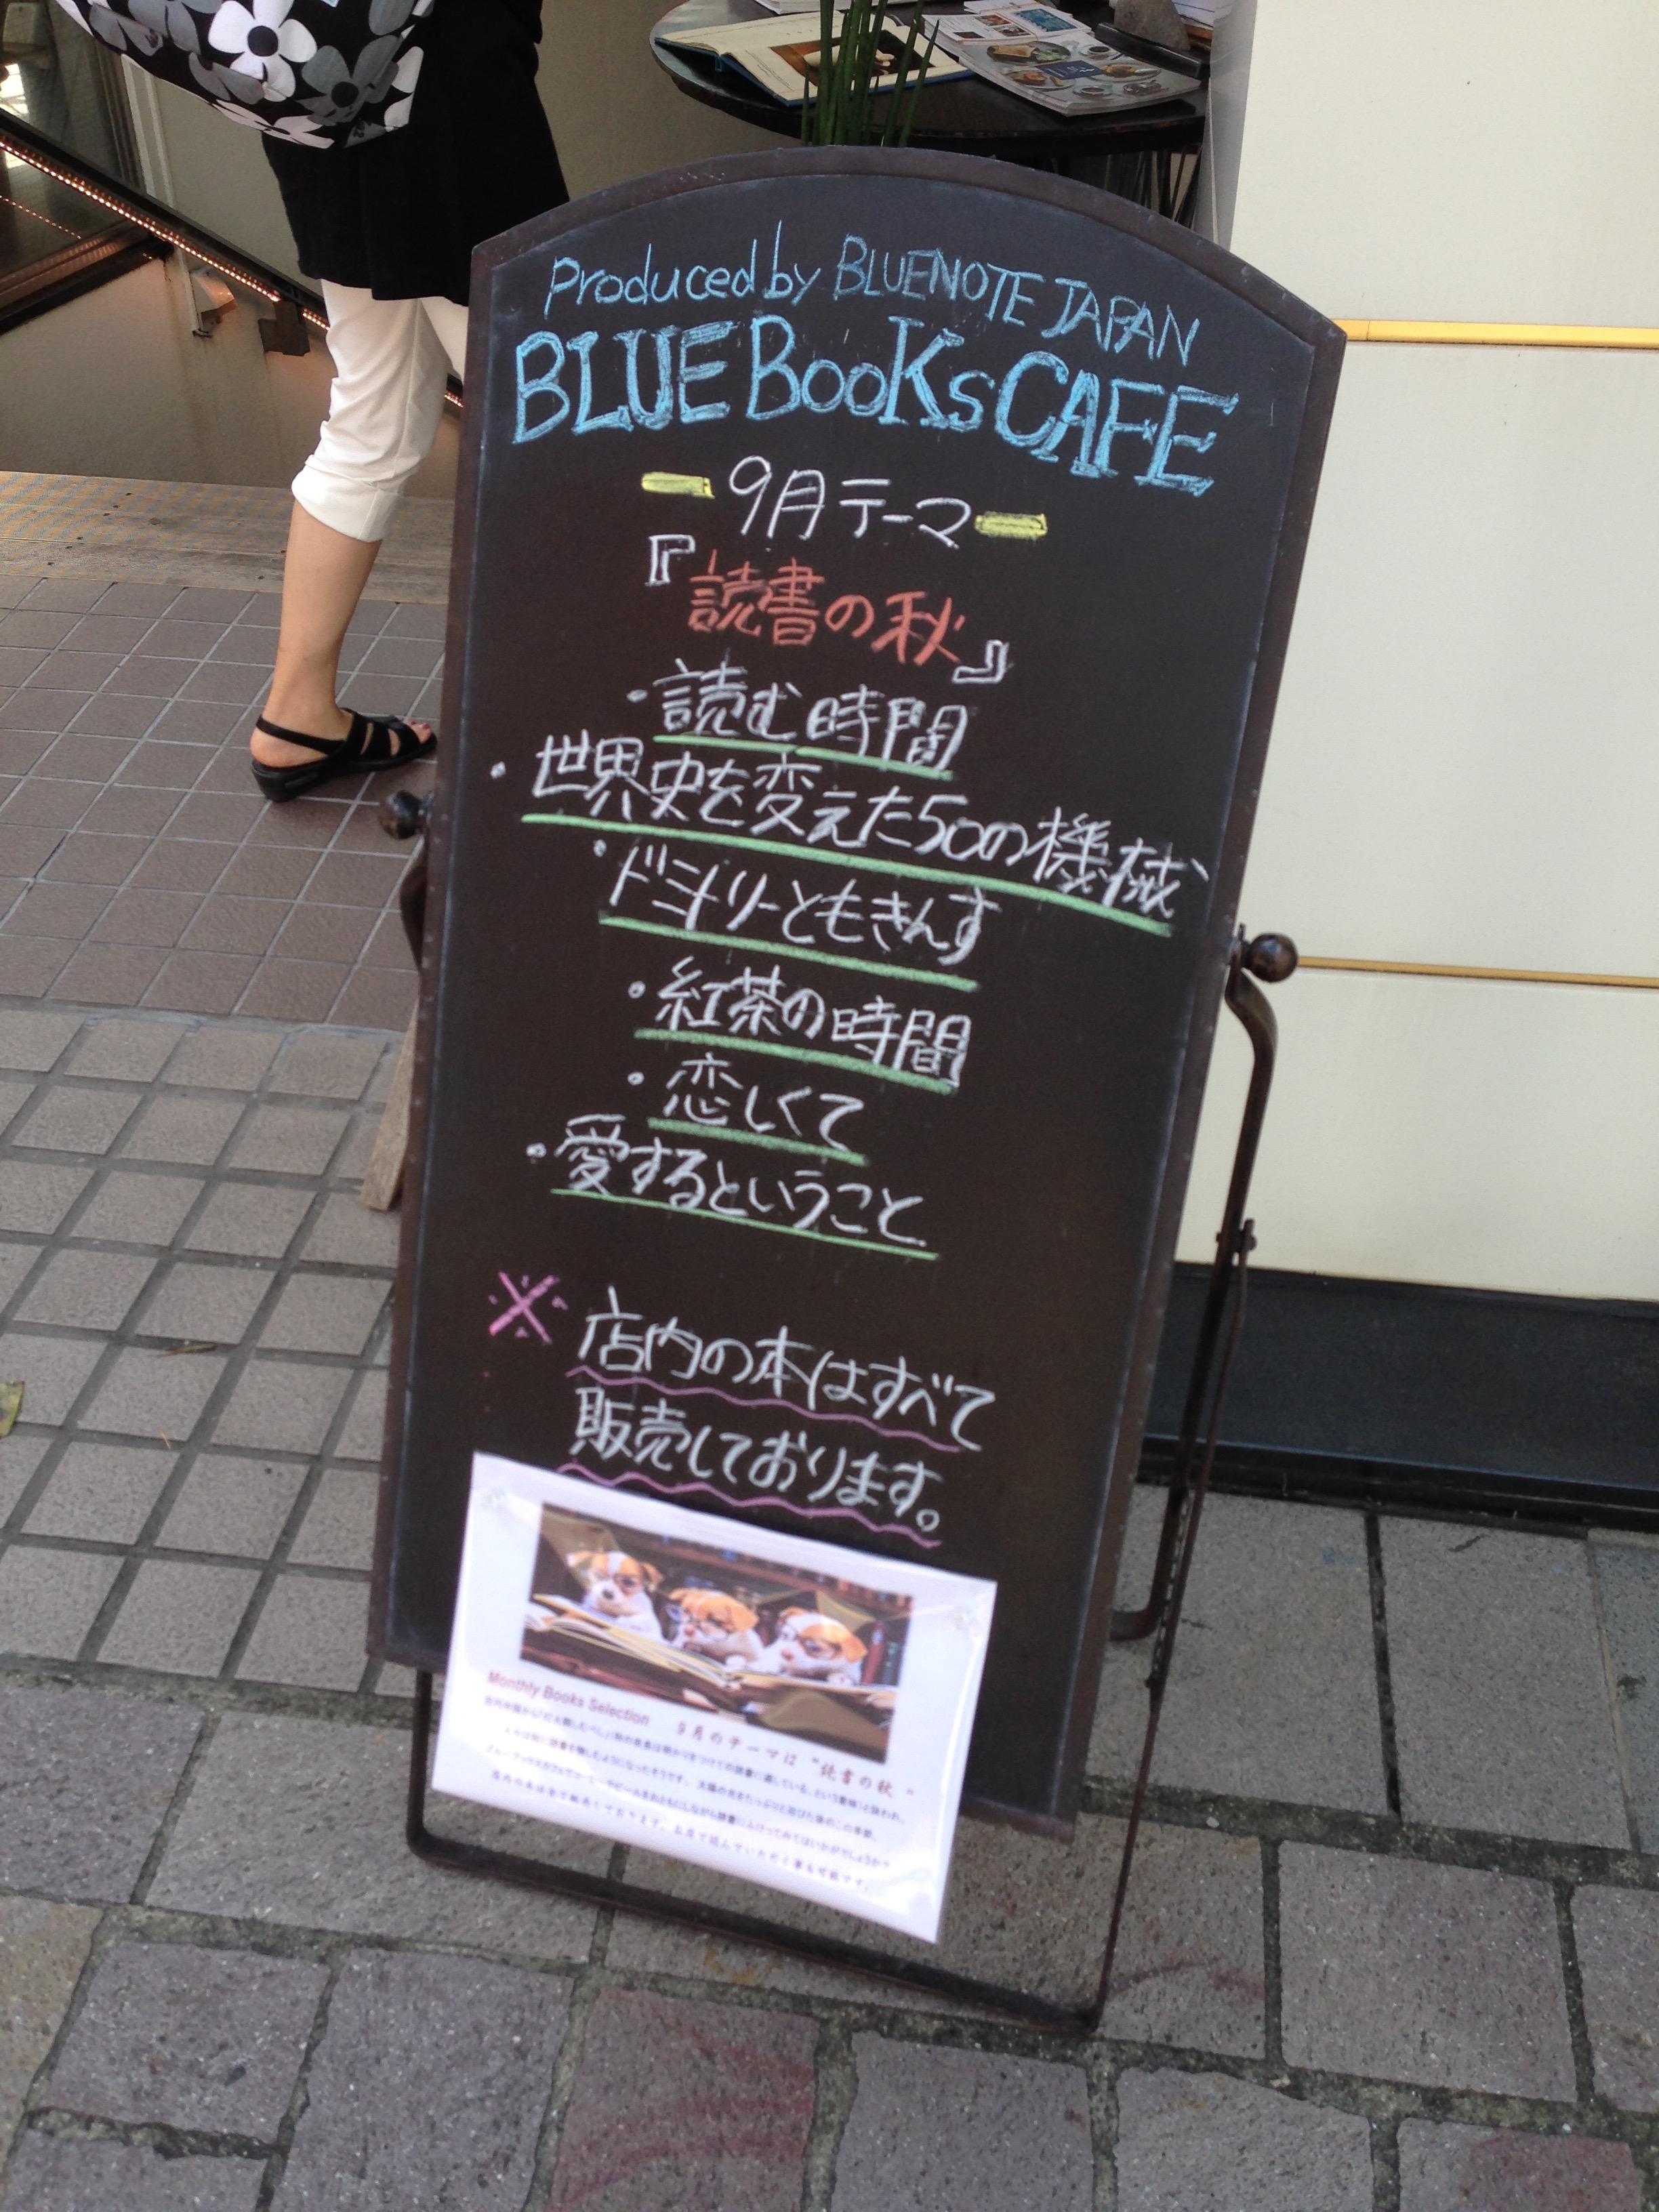 Produced by BLUENOTE JAPAN
BLUE BooKs CAFE
9月テーマ
『読書の秋』
・読む時間
・世界史を変えた50の機械
・ドミトリーともきんす
・紅茶の時間
・恋しくて
・愛するということ
※ 店内の本はすべて
販売しております。
Monthly Books Selection 9月のテーマは "読書の秋"